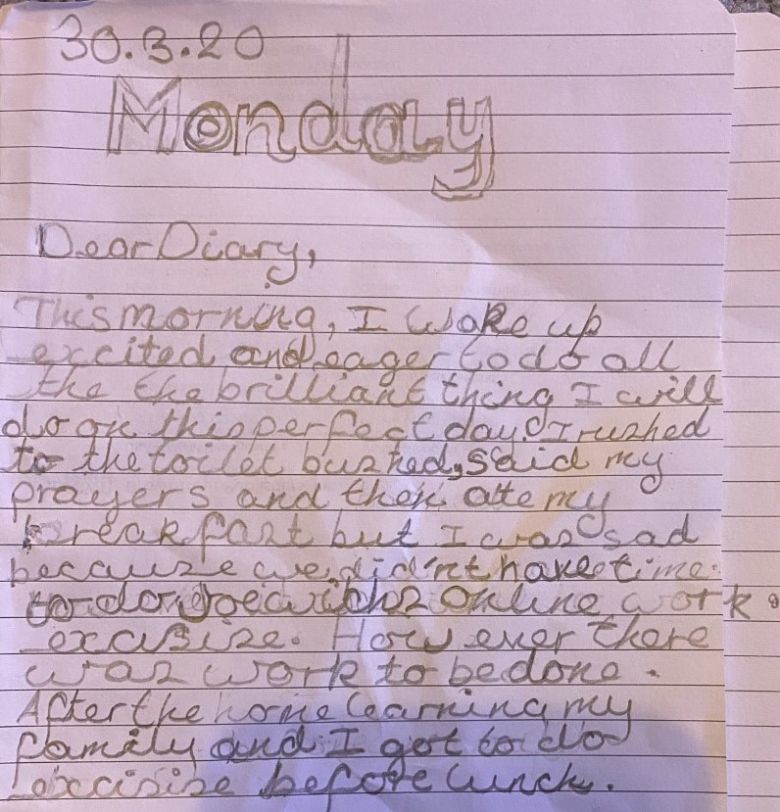 30.3.20
Monday
Dear Diary,
This morning, I woke up
excited and eager to do all
the the brilliant thing I will
do on this perfect day. I rushed
to the toilet bushed, said my
prayers and then ate my
breakfast but I was sad
because we didn'nt have time
to do Joe wicks online work
excisize. However there
was work to be done.
After the home learning my
family and I got to do
excisize before lunch.